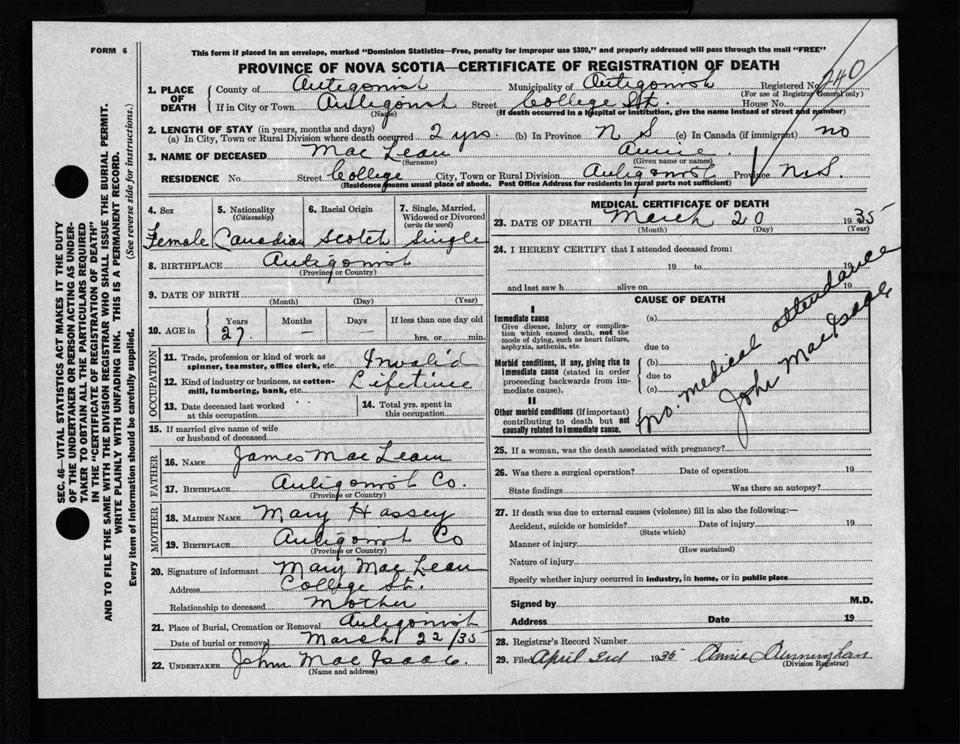 FORM 6
This form if placed in an envelope, marked "Dominion Statistics—Free, penalty for improper use $300," and properly addressed will pass through the mail "FREE"
PROVINCE OF NOVA SCOTIA—CERTIFICATE OF REGISTRATION OF DEATH
1. PLACE OF DEATH County of Antigonish Municipality of Antigonish Registered No. 240
(For use of Registrar General only)
If in City or Town Antigonish Street College St. House No.
(Name) (If death occurred in a hospital or institution, give the name instead of street and number)
2. LENGTH OF STAY (in years, months and days)
(a) In City, Town or Rural Division where death occurred 2 yrs. (b) In Province N S (c) In Canada (if immigrant) no
3. NAME OF DECEASED Mac Lean Annie
(Surname) (Given name or names)
RESIDENCE No. Street College City, Town or Rural Division Antigonish Province N.S.
(Residence means usual place of abode. Post Office Address for residents in rural parts not sufficient)
4. Sex 5. Nationality (Citizenship) 6. Racial Origin 7. Single, Married, Widowed or Divorced (write the word)
Female Canadian Scotch Single
8. BIRTHPLACE Antigonish
(Province or Country)
9. DATE OF BIRTH
(Month) (Day) (Year)
10. AGE in Years Months Days If less than one day old
27 — — hrs. or min.
OCCUPATION
11. Trade, profession or kind of work as spinner, teamster, office clerk, etc. Invalid
12. Kind of industry or business, as cotton-mill, lumbering, bank, etc. Lifetime
13. Date deceased last worked at this occupation 14. Total yrs. spent in this occupation
15. If married give name of wife or husband of deceased
FATHER
16. NAME James Mac Lean
17. BIRTHPLACE Antigonish Co.
(Province or Country)
MOTHER
18. MAIDEN NAME Mary Hassey
19. BIRTHPLACE Antigonish Co
(Province or Country)
20. Signature of informant Mary Mac Lean
Address College St.
Relationship to deceased Mother
21. Place of Burial, Cremation or Removal Antigonish
Date of burial or removal March 22/35
22. UNDERTAKER John Mac Isaac
(Name and address)
MEDICAL CERTIFICATE OF DEATH
23. DATE OF DEATH March 20 1935
(Month) (Day) (Year)
24. I HEREBY CERTIFY that I attended deceased from:
19 to 19
and last saw h alive on 19
CAUSE OF DEATH
I
Immediate cause (a)
Give disease, injury or complication which caused death, not the mode of dying, such as heart failure, asphyxia, asthenia, etc. due to
Morbid conditions, if any, giving rise to immediate cause (stated in order proceeding backwards from immediate cause). (b)
due to
(c)
II
Other morbid conditions (if important) contributing to death but not causally related to immediate cause.
No medical attendance
John Mac Isaac
25. If a woman, was the death associated with pregnancy?
26. Was there a surgical operation? Date of operation 19
State findings Was there an autopsy?
27. If death was due to external causes (violence) fill in also the following:—
Accident, suicide or homicide? Date of injury 19
(State which)
Manner of injury
(How sustained)
Nature of injury
Specify whether injury occurred in industry, in home, or in public place
Signed by M.D.
Address Date 19
28. Registrar's Record Number
29. Filed April 3rd 1935 Annie Cunningham
(Division Registrar)
SEC. 46—VITAL STATISTICS ACT MAKES IT THE DUTY
OF THE UNDERTAKER OR PERSON ACTING AS UNDER-
TAKER TO OBTAIN ALL THE PARTICULARS REQUIRED
IN THE "CERTIFICATE OF REGISTRATION OF DEATH"
AND TO FILE THE SAME WITH THE DIVISION REGISTRAR WHO SHALL ISSUE THE BURIAL PERMIT.
WRITE PLAINLY WITH UNFADING INK. THIS IS A PERMANENT RECORD.
Every item of information should be carefully supplied. (See reverse side for instructions.)